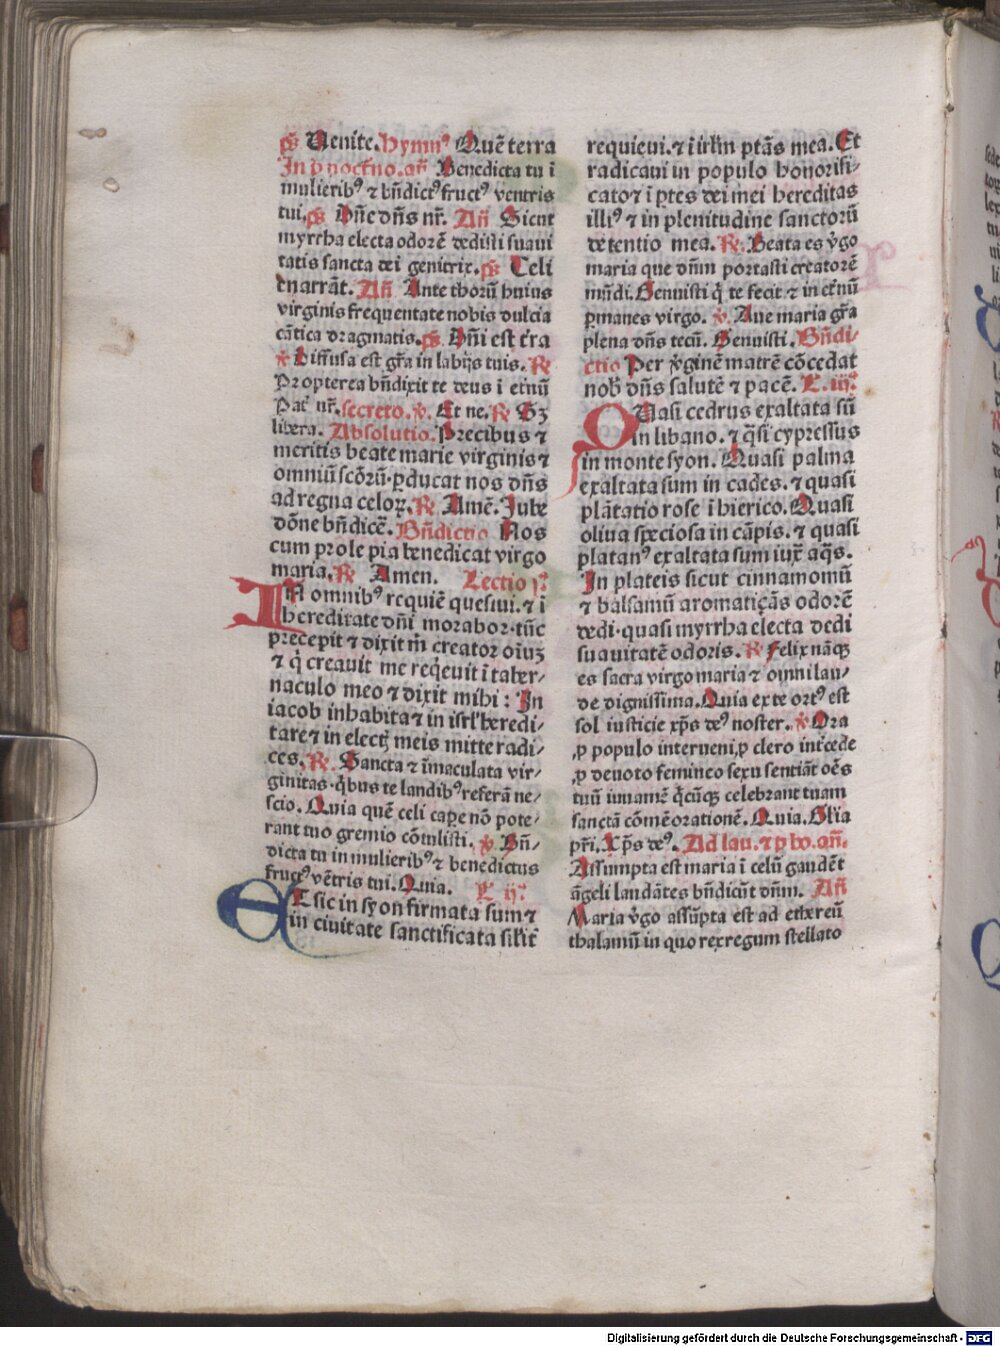 ps̄ Uenite. hymnꝰ Quē terra
In p̄ noct̄no. an̄ Benedicta tu i
mulieribꝰ ⁊ bn̄dictꝰ fructꝰ ventris
tui. ps̄ Dn̄e dn̄s nr̄. An̄ Sicut
myrrha electa odorē dedisti suaui
tatis sancta dei genitrix. ps̄ Celi
enarrāt. An̄ Ante thorū huius
virginis frequentate nobis dulcia
cātica dragmatis. ps̄ Dn̄i est t̄ra
v̄ Diffusa est gr̄a in labijs tuis. R̄
Propterea bn̄dixit te deus i et̄nū
Pat̄ nr̄. secreto. v̄. Et ne. R̄ Sꝫ
libera. Absolutio. Precibus ⁊
meritis beate marie virginis ⁊
omniū sc̄orū. ꝑducat nos dn̄s
ad regna celoꝝ. R̄ Amē. Jube
dōne bn̄dicē. Bn̄dictio Nos
cum prole pia benedicat virgo
maria. R̄ Amen. Lectio j.
IN omnibꝰ requiē quesiui. ⁊ i
hereditate dn̄i morabor. tūc
precepit ⁊ dixit m̄ creator oīuꝫ
⁊ q̇ creauit me reqͥeuit i taber⸗
naculo meo ⁊ dixit mihi: In
iacob inhabita ⁊ in isrl̄ heredi⸗
tare ⁊ in electꝭ meis mitte radi⸗
ces. R̄. Sancta ⁊ īmaculata vir⸗
ginitas. qͥbus te laudibꝰ referā ne⸗
scio. Quia quē celi capere nō pote⸗
rant tuo gremio cōtulisti. v̄ Bn̄⸗
dicta tu in mulieribꝰ ⁊ benedictus
fructꝰ vētris tui. Quia. L ij.
ET sic in syon firmata sum ⁊
in ciuitate sanctificata silit̄
requieui. ⁊ i irlm̄ ptās mea. Et
radicaui in populo honorifi⸗
cato ⁊ i ptes dei mei hereditas
illiꝰ ⁊ in plenitudine sanctorū
detentio mea. R̄. Beata es v̇go
maria que dn̄m portasti creatorē
mūdi. Genuisti q̇ te fecit ⁊ in et̄nū
ꝑmanes virgo. v̄. Aue maria gr̄a
plena dn̄s tecū. Genuisti. Bn̄di⸗
ctio Per v̇ginē matrē cōcedat
nobꝭ dn̄s salutē ⁊ pacē. L. iij.
QUasi cedrus exaltata sū
in libano. ⁊ q̄si cypressus
in monte syon. Quasi palma
exaltata sum in cades. ⁊ quasi
plātatio rose i hierico. Quasi
oliua speciosa in cāpis. ⁊ quasi
platanꝰ exaltata sum iux̄ aq̄s.
In plateis sicut cinnamomū
⁊ balsamū aromatizās odorē
dedi. quasi myrrha electa dedi
suauitatē odoris. R̄ Felix nāqꝫ
es sacra virgo maria ⁊ omni lau⸗
de dignissima. Quia ex te ortꝰ est
sol iusticie xp̄s deꝰ noster. v̄ Ora
ꝓ populo interueni ꝓ clero int̄cede
ꝓ deuoto femineo sexu sentiāt oēs
tuū iuuamē qͥcūqꝫ celebrant tuam
sanctā cōmēorationē. Quia. Gl̄ia
pr̄i. Xp̄s deꝰ. Ad lau. ⁊ p ho. an̄.
Assumpta est maria i celū gaudēt
āgeli laudātes bn̄dicūt dn̄m. An̄
Maria v̇go assūpta est ad ethereū
thalamū in quo rex regum stellato
Digitalisierung gefördert durch die Deutsche Forschungsgemeinschaft - DFG